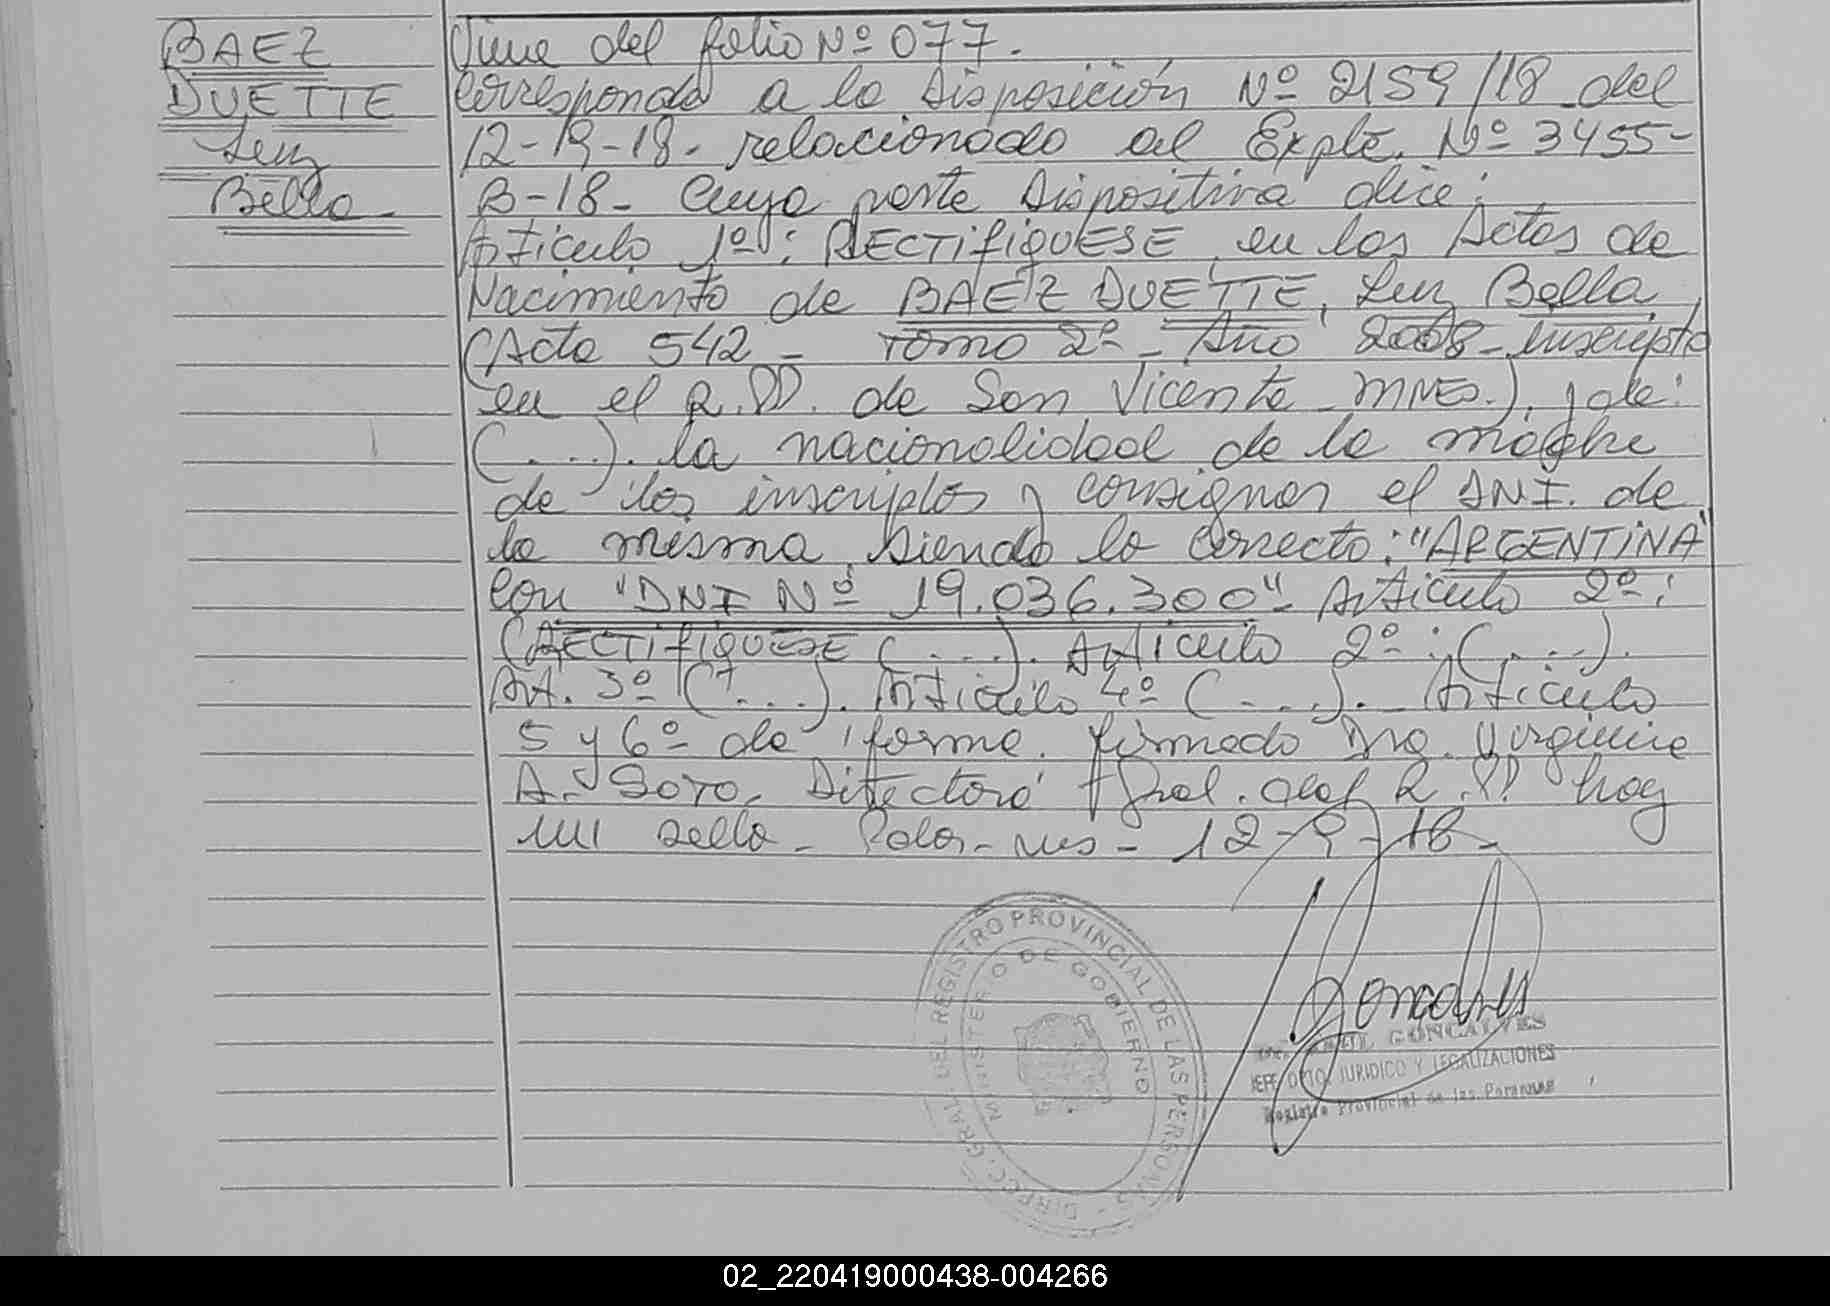 BAEZ
DUETTE
Luz
Bella
Viene del folio Nº 077.
Corresponde a la Disposición Nº 2159/18 del
12-19-18. relacionado al Expte. Nº 3455-
B-18- Cuya parte Dispositiva dice:
Artículo 1º: RECTIFIQUESE, en las Actas de
Nacimiento de BAEZ DUETTE, Luz Bella
(Acta 542 - Tomo 2º - Año 2008 - inscripta
en el R.PP. de San Vicente - MNES.), y de:
(....). la nacionalidad de la madre
de los inscriptos y consignar el DNI. de
la misma, siendo lo correcto: "ARGENTINA"
con "DNI Nº 19.036.300" Artículo 2º:
(RECTIFIQUESE (....). Artículo 2º: (....).
Art. 3º (....). Artículo 4º (....).- Artículo
5 y 6º de forma. firmado Dra. Virginia
A. Soto. Directora Gral. del R.PP. hay
un sello - Pdas. Mes - 12-9-18-
DIRECC. GRAL. DEL REGISTRO PROVINCIAL DE LAS PERSONAS -
MINISTERIO DE GOBIERNO
GONCALVES
JEFE DPTO. JURIDICO Y LEGALIZACIONES
Registro Provincial de las Personas
02_220419000438-004266